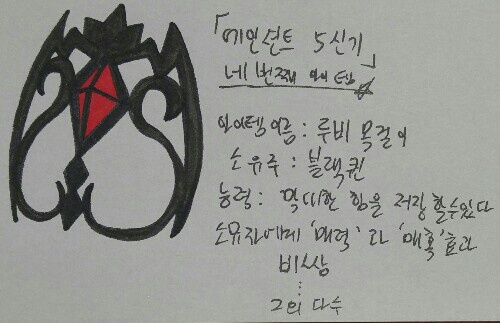 「에인션트 5신기」
네 번째 아이템
아이템이름 : 루비 목걸이
소유주 : 블랙퀸
능력 : 막대한 힘을 저장 할수있다
소유자에게 '매력' 과 '매혹' 효과
비상
⋮
그외 다수